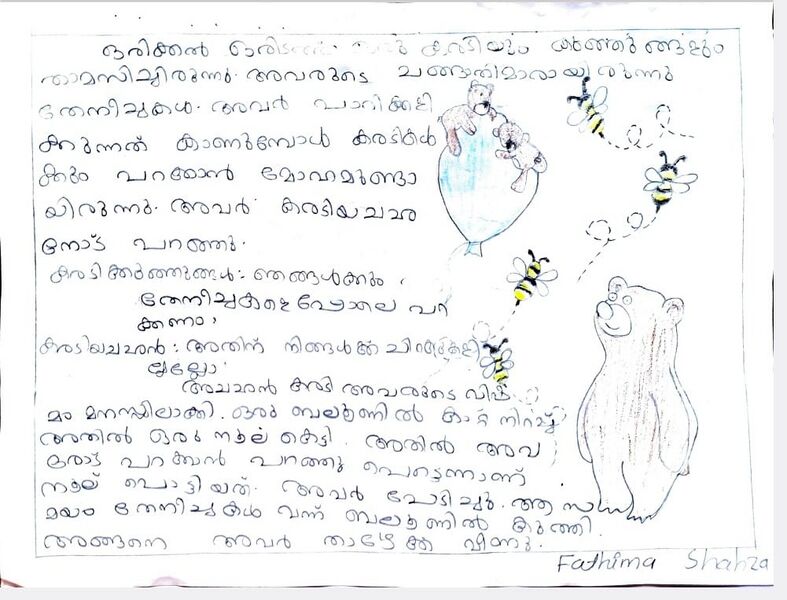 ഒരിക്കൽ കരടിയും കുഞ്ഞുങ്ങളും
താമസിച്ചിരുന്നു. അവരുടെ ചങ്ങാതിമാരായിരുന്നു
തേനീച്ചകൾ. അവർ പാറിക്കളി
ക്കുന്നത് കാണുമ്പോൾ കരടികൾ
ക്കും പറക്കാൻ മോഹമുണ്ടാ
യിരുന്നു. അവർ കരടിയച്ഛ
നോട് പറഞ്ഞു.
കരടിക്കുഞ്ഞുങ്ങൾ: ഞങ്ങൾക്കും
തേനീച്ചകളെപ്പോലെ പറ
ക്കണം'
കരടിയച്ഛൻ: അതിന് നിങ്ങൾക്ക് ചിറകുകളി
ല്ലല്ലോ'
അച്ഛൻ കരടി അവരുടെ വിഷ
മം മനസ്സിലാക്കി. ഒരു ബലൂണിൽ കാറ്റ് നിറച്ച്
അതിൽ ഒരു നൂല് കെട്ടി. അതിൽ അവ
രോട് പറക്കാൻ പറഞ്ഞു പെട്ടെന്നാണ്
നൂല് പൊട്ടിയത്. അവർ പേടിച്ചു. ആ സ
മയം തേനീച്ചകൾ വന്ന് ബലൂണിൽ കുത്തി.
അങ്ങനെ അവർ താഴേക്ക് വീണു.
Fathima Shahza